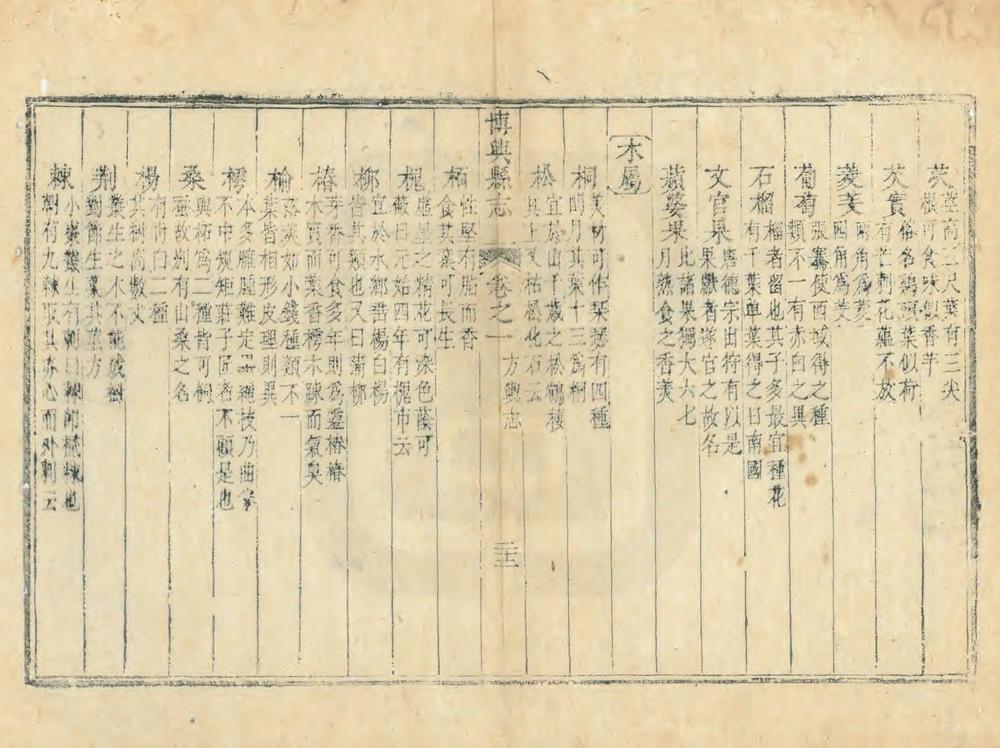 茨莖高二三尺葉有三尖
根可食味似香芋
芡實俗名鷄頭葉似荷
有芒刺花蘊不放
菱芰兩角為菱
四角為芰
葡萄張騫使西域得之種
類不一有赤白之異
石榴榴者留也其子多最宜種花
有千葉單葉得之日南國
文官果唐德宗出狩有以是
果獻者遂官之故名
蘋婆果比諸果獨大六七
月熟食之香美
木屬
桐美材可作琴瑟有四種
閏月其葉十三為桐
松宜於山千歲之松鶴棲
其上又枯松化石云
方輿志
博興縣志
卷之一
二十一
栢性堅有脂而香
食其葉可長生
槐虛星之精花可染色蔭可
蔽日元始四年有槐市云
柳宜於水鄉垂楊白楊
皆其類也又曰蒲柳
椿芽香可食多年則為靈椿椿
木實而葉香樗木踈而氣臭
榆葉皆相形皮理則異
落莢如小錢種類不一
樗本多雍腫難定繩枝乃曲拳
不中規矩莊子匠者不顧是也
桑與柘為二種皆可飼
蚕故別有山桑之名
楊有青白二種
其樹高數丈
荆叢生之木不能成樹
對節生葉其莖方
棘小棗叢生有刺曰棘即樲棘也
朝有九棘取其赤心而外刺云